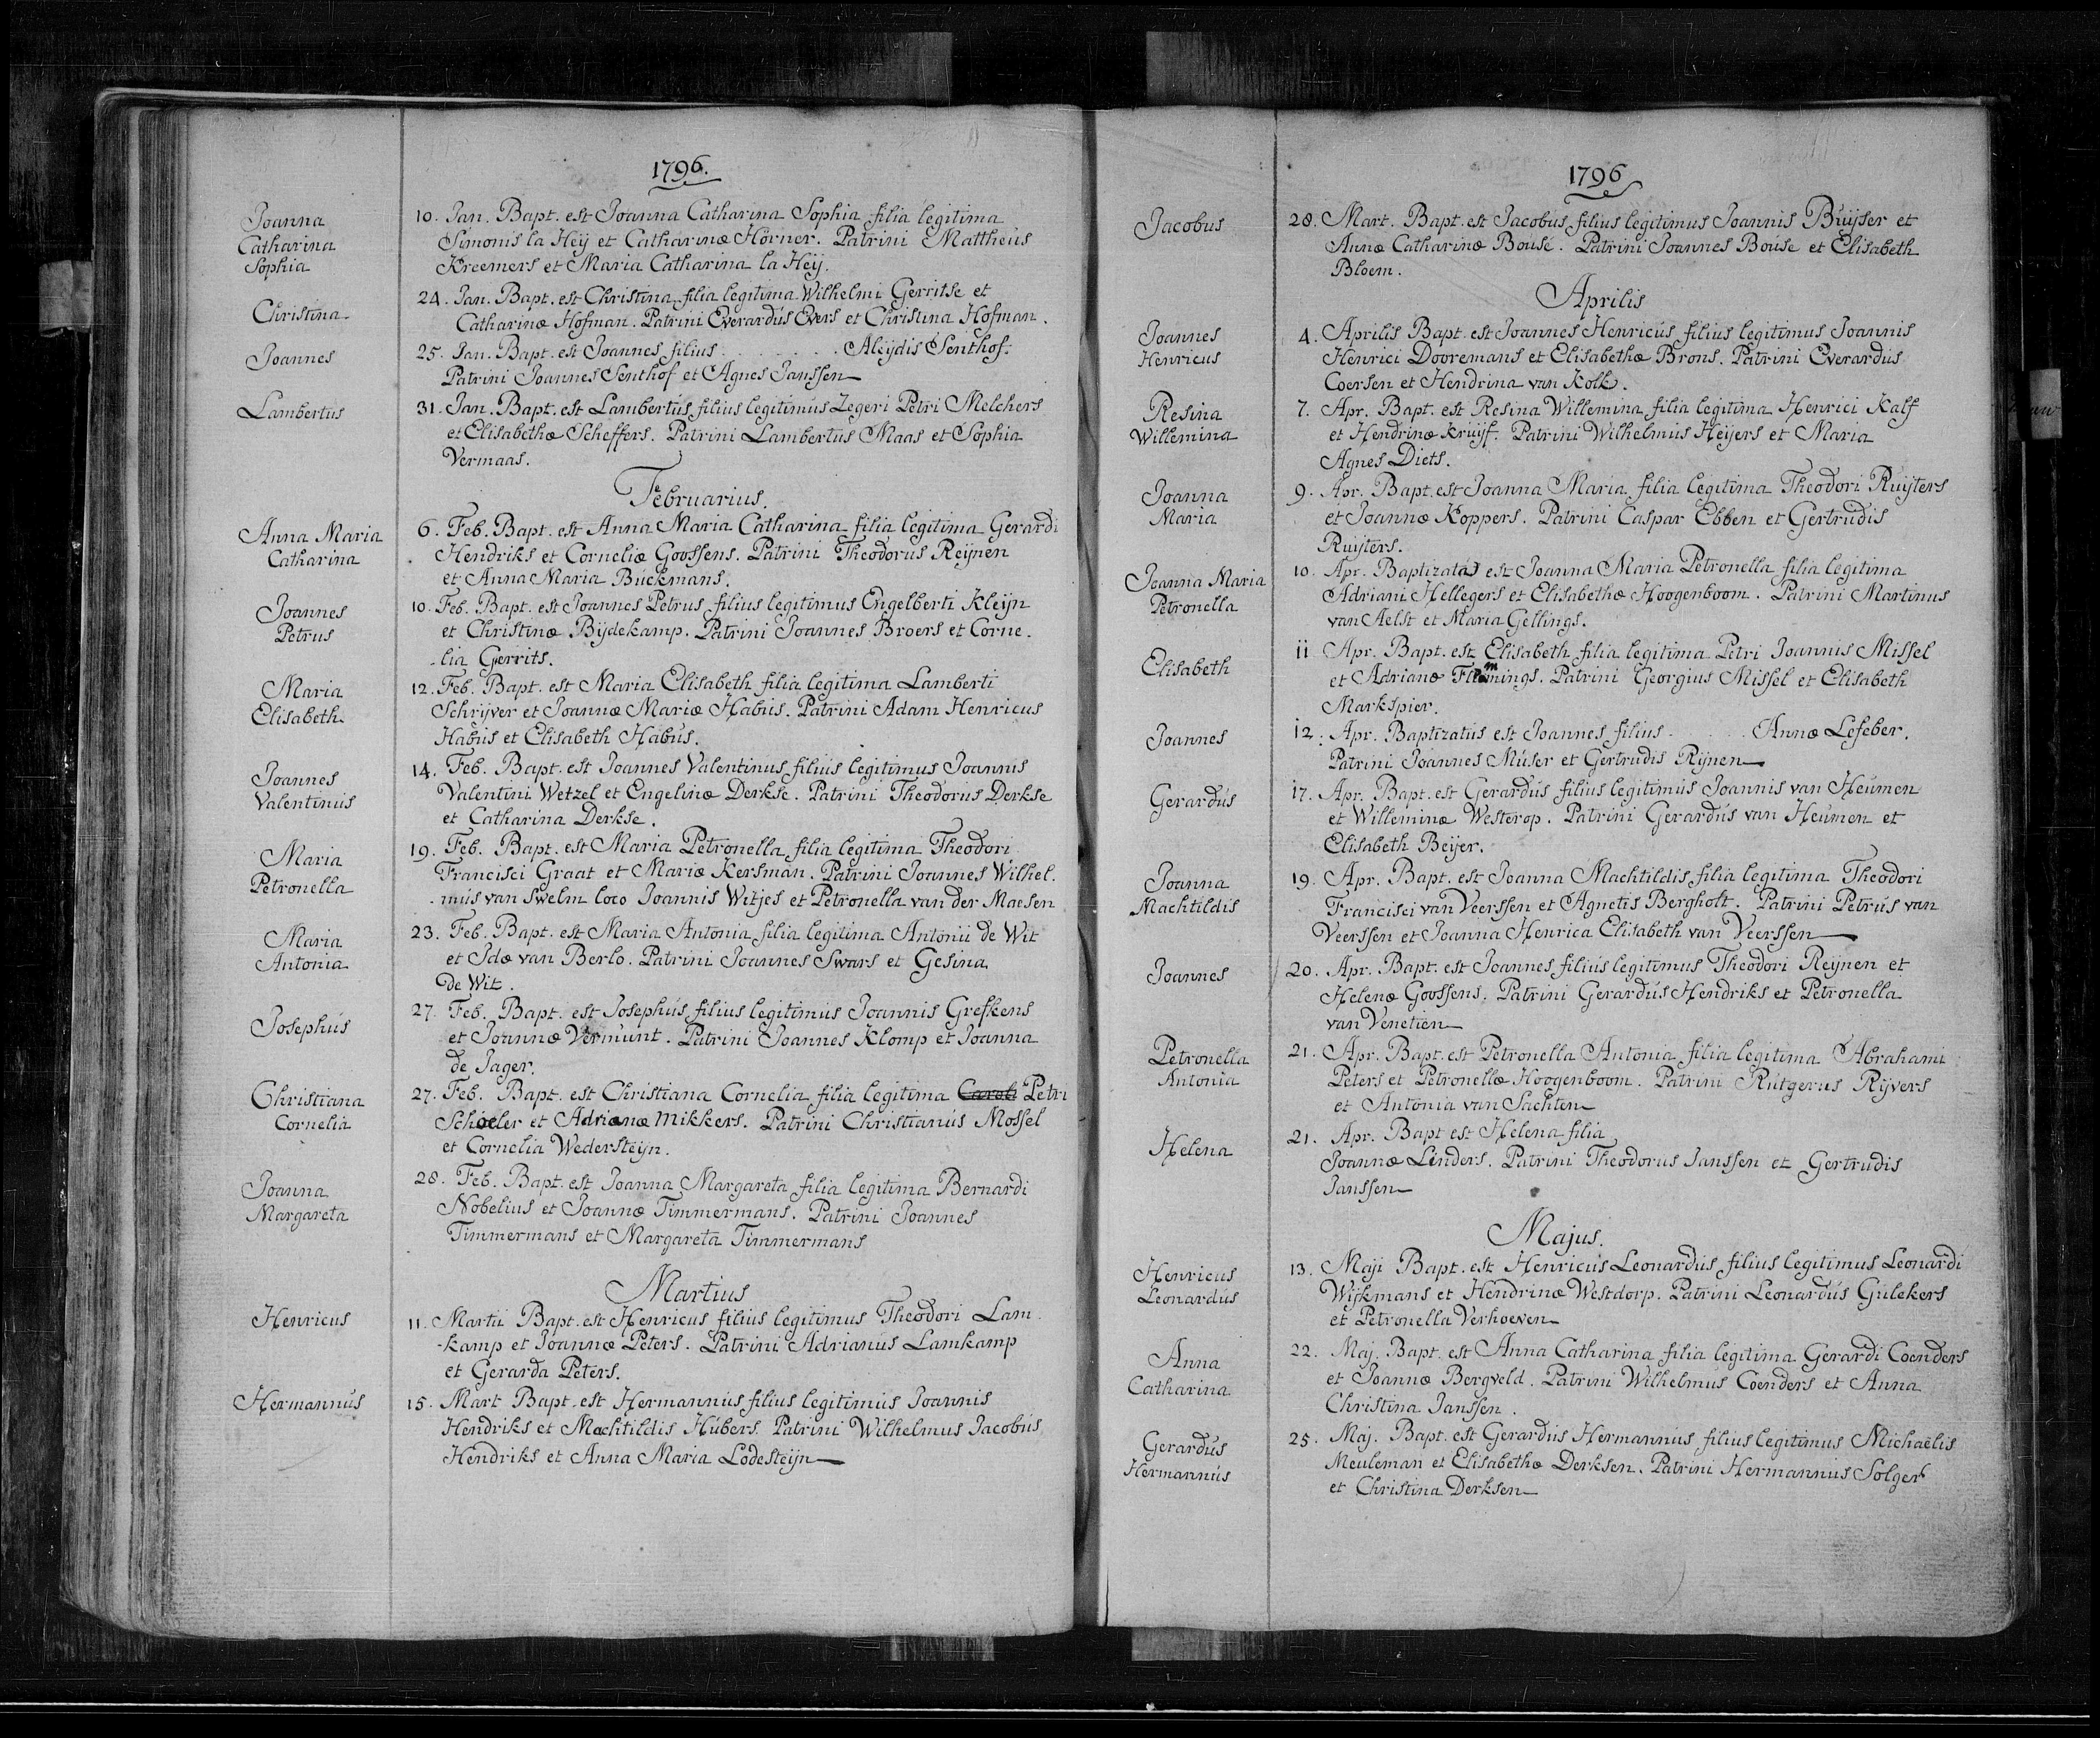 1796.
Joanna
Catharina
Sophia
10. Jan. Bapt. est Joanna Catharina Sophia filia legitima
Simonis la Heÿ et Catharinæ Hörner. Patrini Mattheus
Kreemers et Maria Catharina la Heÿ.
Christina
24. Jan. Bapt. est Christina filia legitima Wilhelmi Gerritse et
Catharinæ Hofman. Patrini Everardus Evers et Christina Hofman.
Joannes
25. Jan. Bapt. est Joannes filius . . . . . . . Aleÿdis Senthof.
Patrini Joannes Senthof et Agnes Janssen
Lambertus
31. Jan. Bapt. est Lambertus filius legitimus Zegeri Petri Melchers
et Elisabethæ Scheffers. Patrini Lambertus Maas et Sophia
Vermaas.
Februarius.
Anna Maria
Catharina
6. Feb. Bapt. est Anna Maria Catharina filia legitima Gerardi
Hendriks et Corneliæ Goossens. Patrini Theodorus Reijnen
et Anna Maria Buckmans.
Joannes
Petrus
10. Feb. Bapt. est Joannes Petrus filius legitimus Engelberti Kleijn
et Christinæ Bijdekamp. Patrini Joannes Broers et Corne-
-lia Gerrits.
Maria
Elisabeth
12. Feb. Bapt. est Maria Elisabeth filia legitima Lamberti
Schrijver et Joannæ Mariæ Habus. Patrini Adam Henricus
Habus et Elisabeth Habus.
Joannes
Valentinus
14. Feb. Bapt. est Joannes Valentinus filius legitimus Joannis
Valentini Wetzel et Engelinæ Derkse. Patrini Theodorus Derkse
et Catharina Derkse.
Maria
Petronella
19. Feb. Bapt. est Maria Petronella filia legitima Theodori
Francisci Graat et Mariæ Kersman. Patrini Joannes Wilhel-
-mus van Swelm loco Joannis Witjes et Petronella van der Maesen
Maria
Antonia
23. Feb. Bapt. est Maria Antonia filia legitima Antonii de Wit
et Idæ van Berlo. Patrini Joannes Swars et Gesina
de Wit.
Josephus
27. Feb. Bapt. est Josephus filius legitimus Joannis Grefkens
et Joannæ Vermunt. Patrini Joannes Klomp et Joanna
de Jager.
Christiana
Cornelia
27. Feb. Bapt. est Christiana Cornelia filia legitima Caroli Petri
Schoeler et Adrianæ Mikkers. Patrini Christianus Mossel
et Cornelia Wedersteijn.
Joanna
Margareta
28. Feb. Bapt. est Joanna Margareta filia legitima Bernardi
Nobelius et Joannæ Timmermans. Patrini Joannes
Timmermans et Margareta Timmermans
Martius
Henricus
11. Martii Bapt. est Henricus filius legitimus Theodori Lam-
-kamp et Joannæ Peters. Patrini Adrianus Lamkamp
et Gerarda Peters.
Hermannus
15. Mart Bapt. est Hermannus filius legitimus Joannis
Hendriks et Machtildis Hubers. Patrini Wilhelmus Jacobus
Hendriks et Anna Maria Lodesteijn
1796
Jacobus
28. Mart. Bapt. est Jacobus filius legitimus Joannis Buijser et
Annæ Catharinæ Bousé. Patrini Joannes Bouse et Elisabeth
Bloem.
Aprilis
Joannes
Henricus
4. Aprilis Bapt. est Joannes Henricus filius legitimus Joannis
Henrici Dooremans et Elisabethæ Brons. Patrini Everardus
Coersen et Hendrina van Kolk.
Resina
Willemina
7. Apr. Bapt. est Resina Willemina filia legitima Henrici Kalf
et Hendrinæ Kruijf. Patrini Wilhelmus Heijers et Maria
Agnes Diets.
Joanna
Maria
9. Apr. Bapt. est Joanna Maria filia legitima Theodori Ruijters
et Joannæ Koppers. Patrini Caspar Ebben et Gertrudis
Ruijters.
Joanna Maria
Petronella
10. Apr. Baptizata est Joanna Maria Petronella filia legitima
Adriani Hellegers et Elisabethæ Hoogenboom. Patrini Martinus
van Aelst et Maria Gellings.
Elisabeth
11. Apr. Bapt. est Elisabeth filia legitima Petri Joannis Missel
et Adrianæ Flemings. Patrini Georgius Missel et Elisabeth
Markspier.
Joannes
12. Apr. Baptizatus est Joannes filius . . . . . Annæ Lefeber.
Patrini Joannes Muser et Gertrudis Rijnen
Gerardus
17. Apr. Bapt. est Gerardus filius legitimus Joannis van Heumen
et Willeminæ Westerop. Patrini Gerardus van Heumen et
Elisabeth Beijer.
Joanna
Machtildis
19. Apr. Bapt. est Joanna Machtildis filia legitima Theodori
Francisci van Veerssen et Agnetis Bergholt. Patrini Petrus van
Veerssen et Joanna Henrica Elisabeth van Veerssen
Joannes
20. Apr. Bapt. est Joannes filius legitimus Theodori Reijnen et
Helenæ Goossens. Patrini Gerardus Hendriks et Petronella
van Venetien
Petronella
Antonia
21. Apr. Bapt. est Petronella Antonia filia legitima Abrahami
Peters et Petronellæ Hoogenboom. Patrini Rutgerus Rijvers
et Antonia van Sachten
Helena
21. Apr. Bapt est Helena filia
Joannæ Linders. Patrini Theodorus Janssen et Gertrudis
Janssen
Majus.
Henricus
Leonardus
13. Maji Bapt. est Henricus Leonardus filius legitimus Leonardi
Wijkmans et Hendrinæ Westdorp. Patrini Leonardus Gulekers
et Petronella Verhoeven
Anna
Catharina
22. Maj. Bapt. est Anna Catharina filia legitima Gerardi Coenders
et Joannæ Bergveld. Patrini Wilhelmus Coenders et Anna
Christina Janssen.
Gerardus
Hermannus
25. Maj. Bapt. est Gerardus Hermannus filius legitimus Michaëlis
Meuleman et Elisabethæ Derksen. Patrini Hermannus Solger
et Christina Derksen